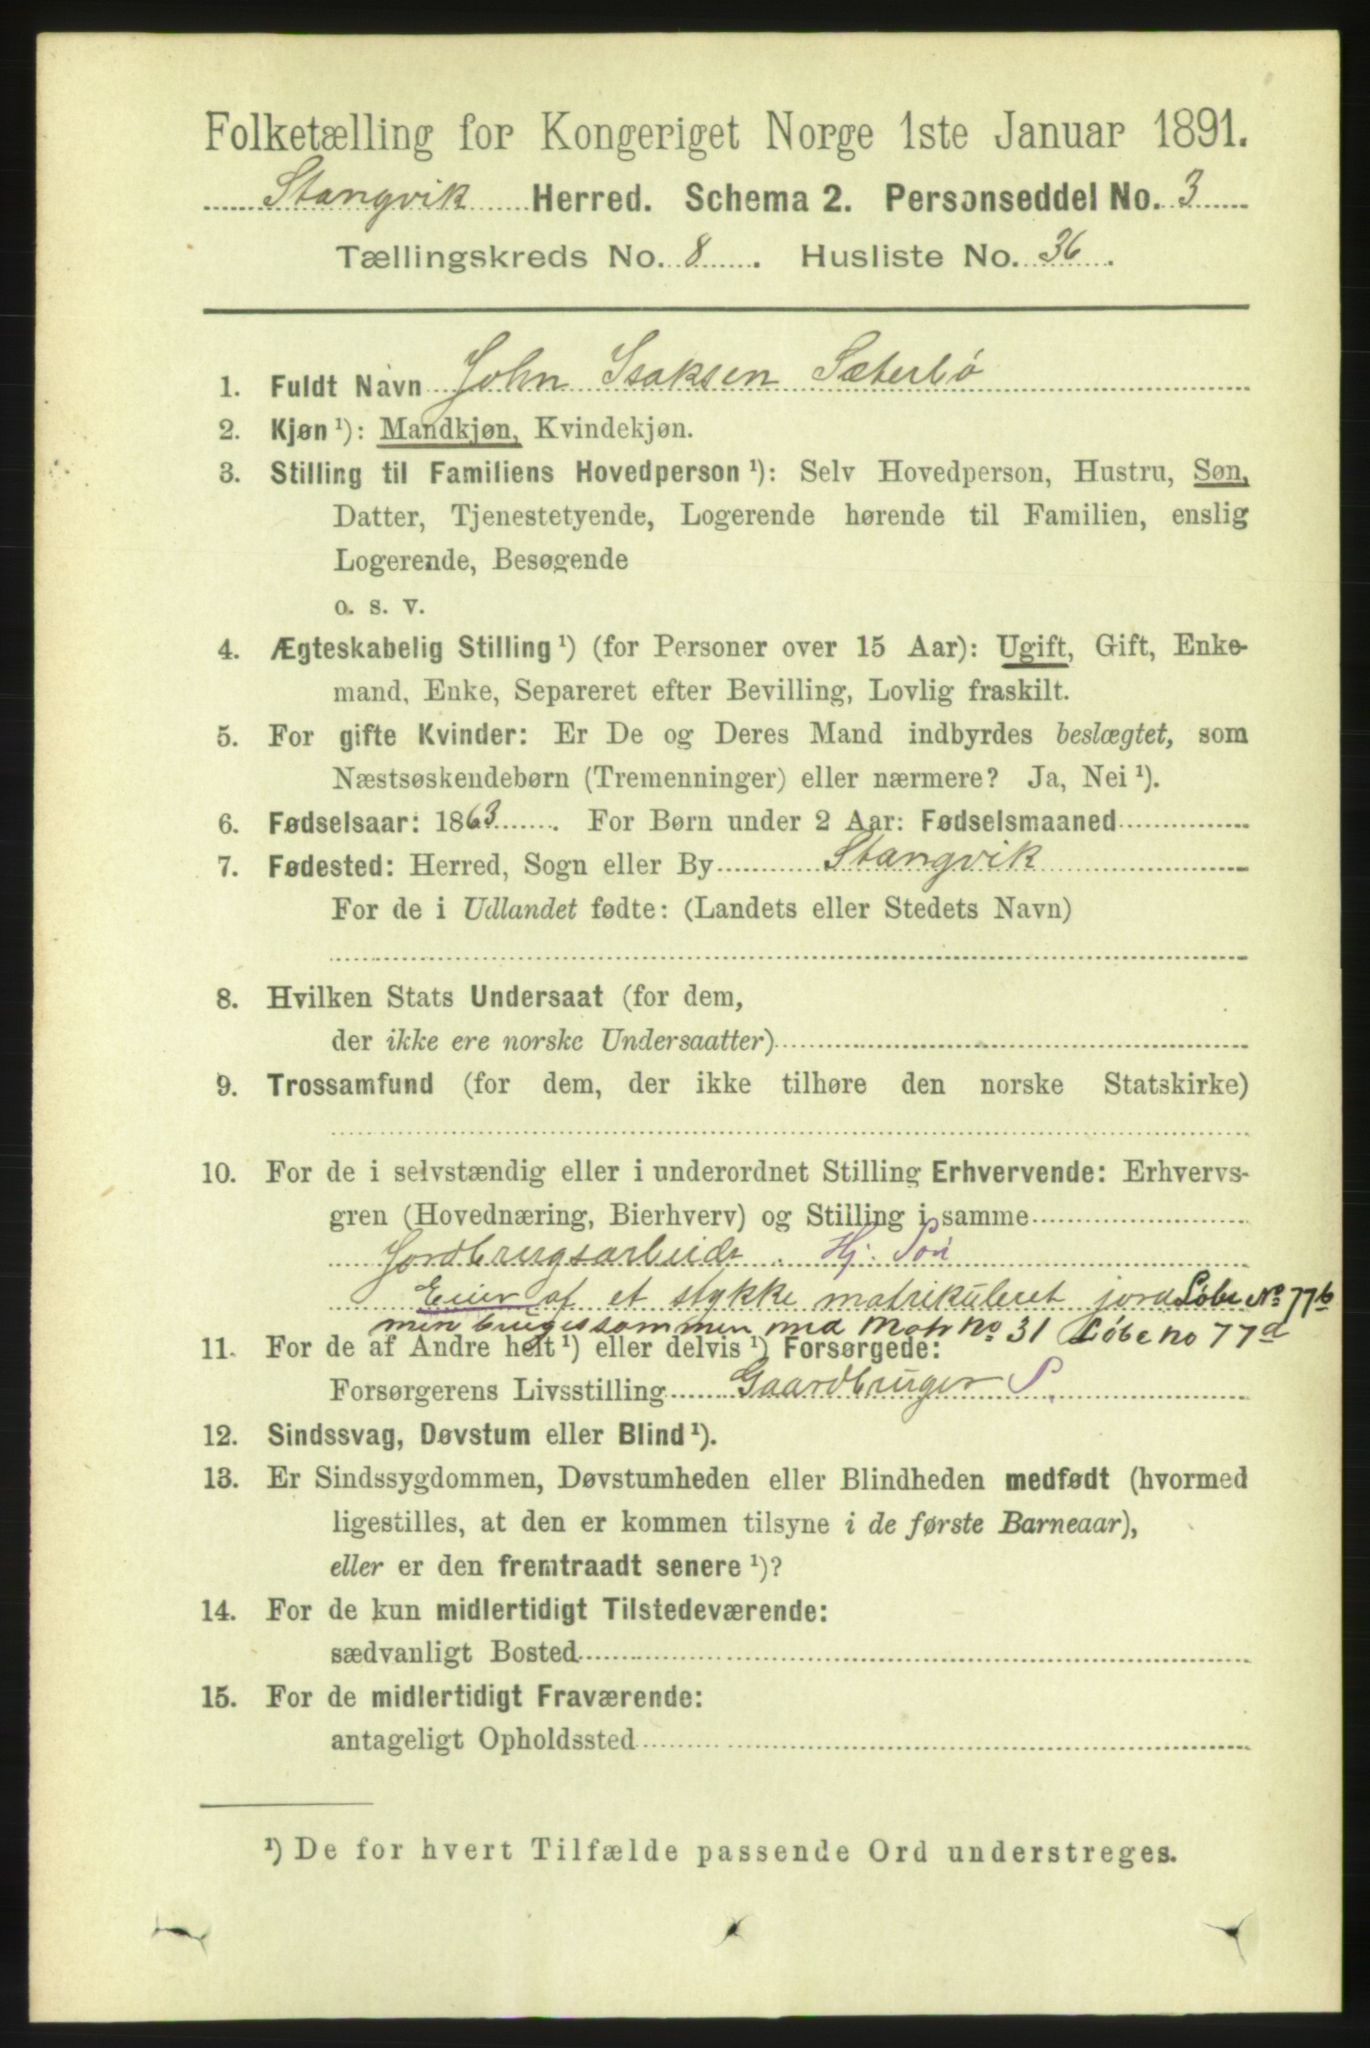 Folketælling for Kongeriget Norge 1ste Januar 1891.
Stangvik Herred. Schema 2. Personseddel No. 3
Tællingskreds No. 8. Husliste No. 36.
1. Fuldt Navn John Isaksen Sæterbø
2. Kjøn ¹): Mandkjøn, Kvindekjøn.
3. Stilling til Familiens Hovedperson ¹): Selv Hovedperson, Hustru, Søn,
Datter, Tjenestetyende, Logerende hørende til Familien, enslig
Logerende, Besøgende
o. s. v.
4. Ægteskabelig Stilling ¹) (for Personer over 15 Aar): Ugift, Gift, Enke-
mand, Enke, Separeret efter Bevilling, Lovlig fraskilt.
5. For gifte Kvinder: Er De og Deres Mand indbyrdes beslægtet, som
Næstsøskendebørn (Tremenninger) eller nærmere? Ja, Nei ¹).
6. Fødselsaar: 1863. For Børn under 2 Aar: Fødselsmaaned
7. Fødested: Herred, Sogn eller By Stangvik
For de i Udlandet fødte: (Landets eller Stedets Navn)
8. Hvilken Stats Undersaat (for dem,
der ikke ere norske Undersaatter)
9. Trossamfund (for dem, der ikke tilhøre den norske Statskirke)
10. For de i selvstændig eller i underordnet Stilling Erhvervende: Erhvervs-
gren (Hovednæring, Bierhverv) og Stilling i samme
Jordbrugsarbeide. Hj. Søn
Eier af et stykke matrikuleret jord Løbe No 77b
men bruges sammen med Matr no 31 Løbe no 77a
11. For de af Andre helt ¹) eller delvis ¹) Forsørgede:
Forsørgerens Livsstilling Gaardbruger S.
12. Sindssvag, Døvstum eller Blind ¹).
13. Er Sindssygdommen, Døvstumheden eller Blindheden medfødt (hvormed
ligestilles, at den er kommen tilsyne i de første Barneaar),
eller er den fremtraadt senere ¹)?
14. For de kun midlertidigt Tilstedeværende:
sædvanligt Bosted
15. For de midlertidigt Fraværende:
antageligt Opholdssted
¹) De for hvert Tilfælde passende Ord understreges.